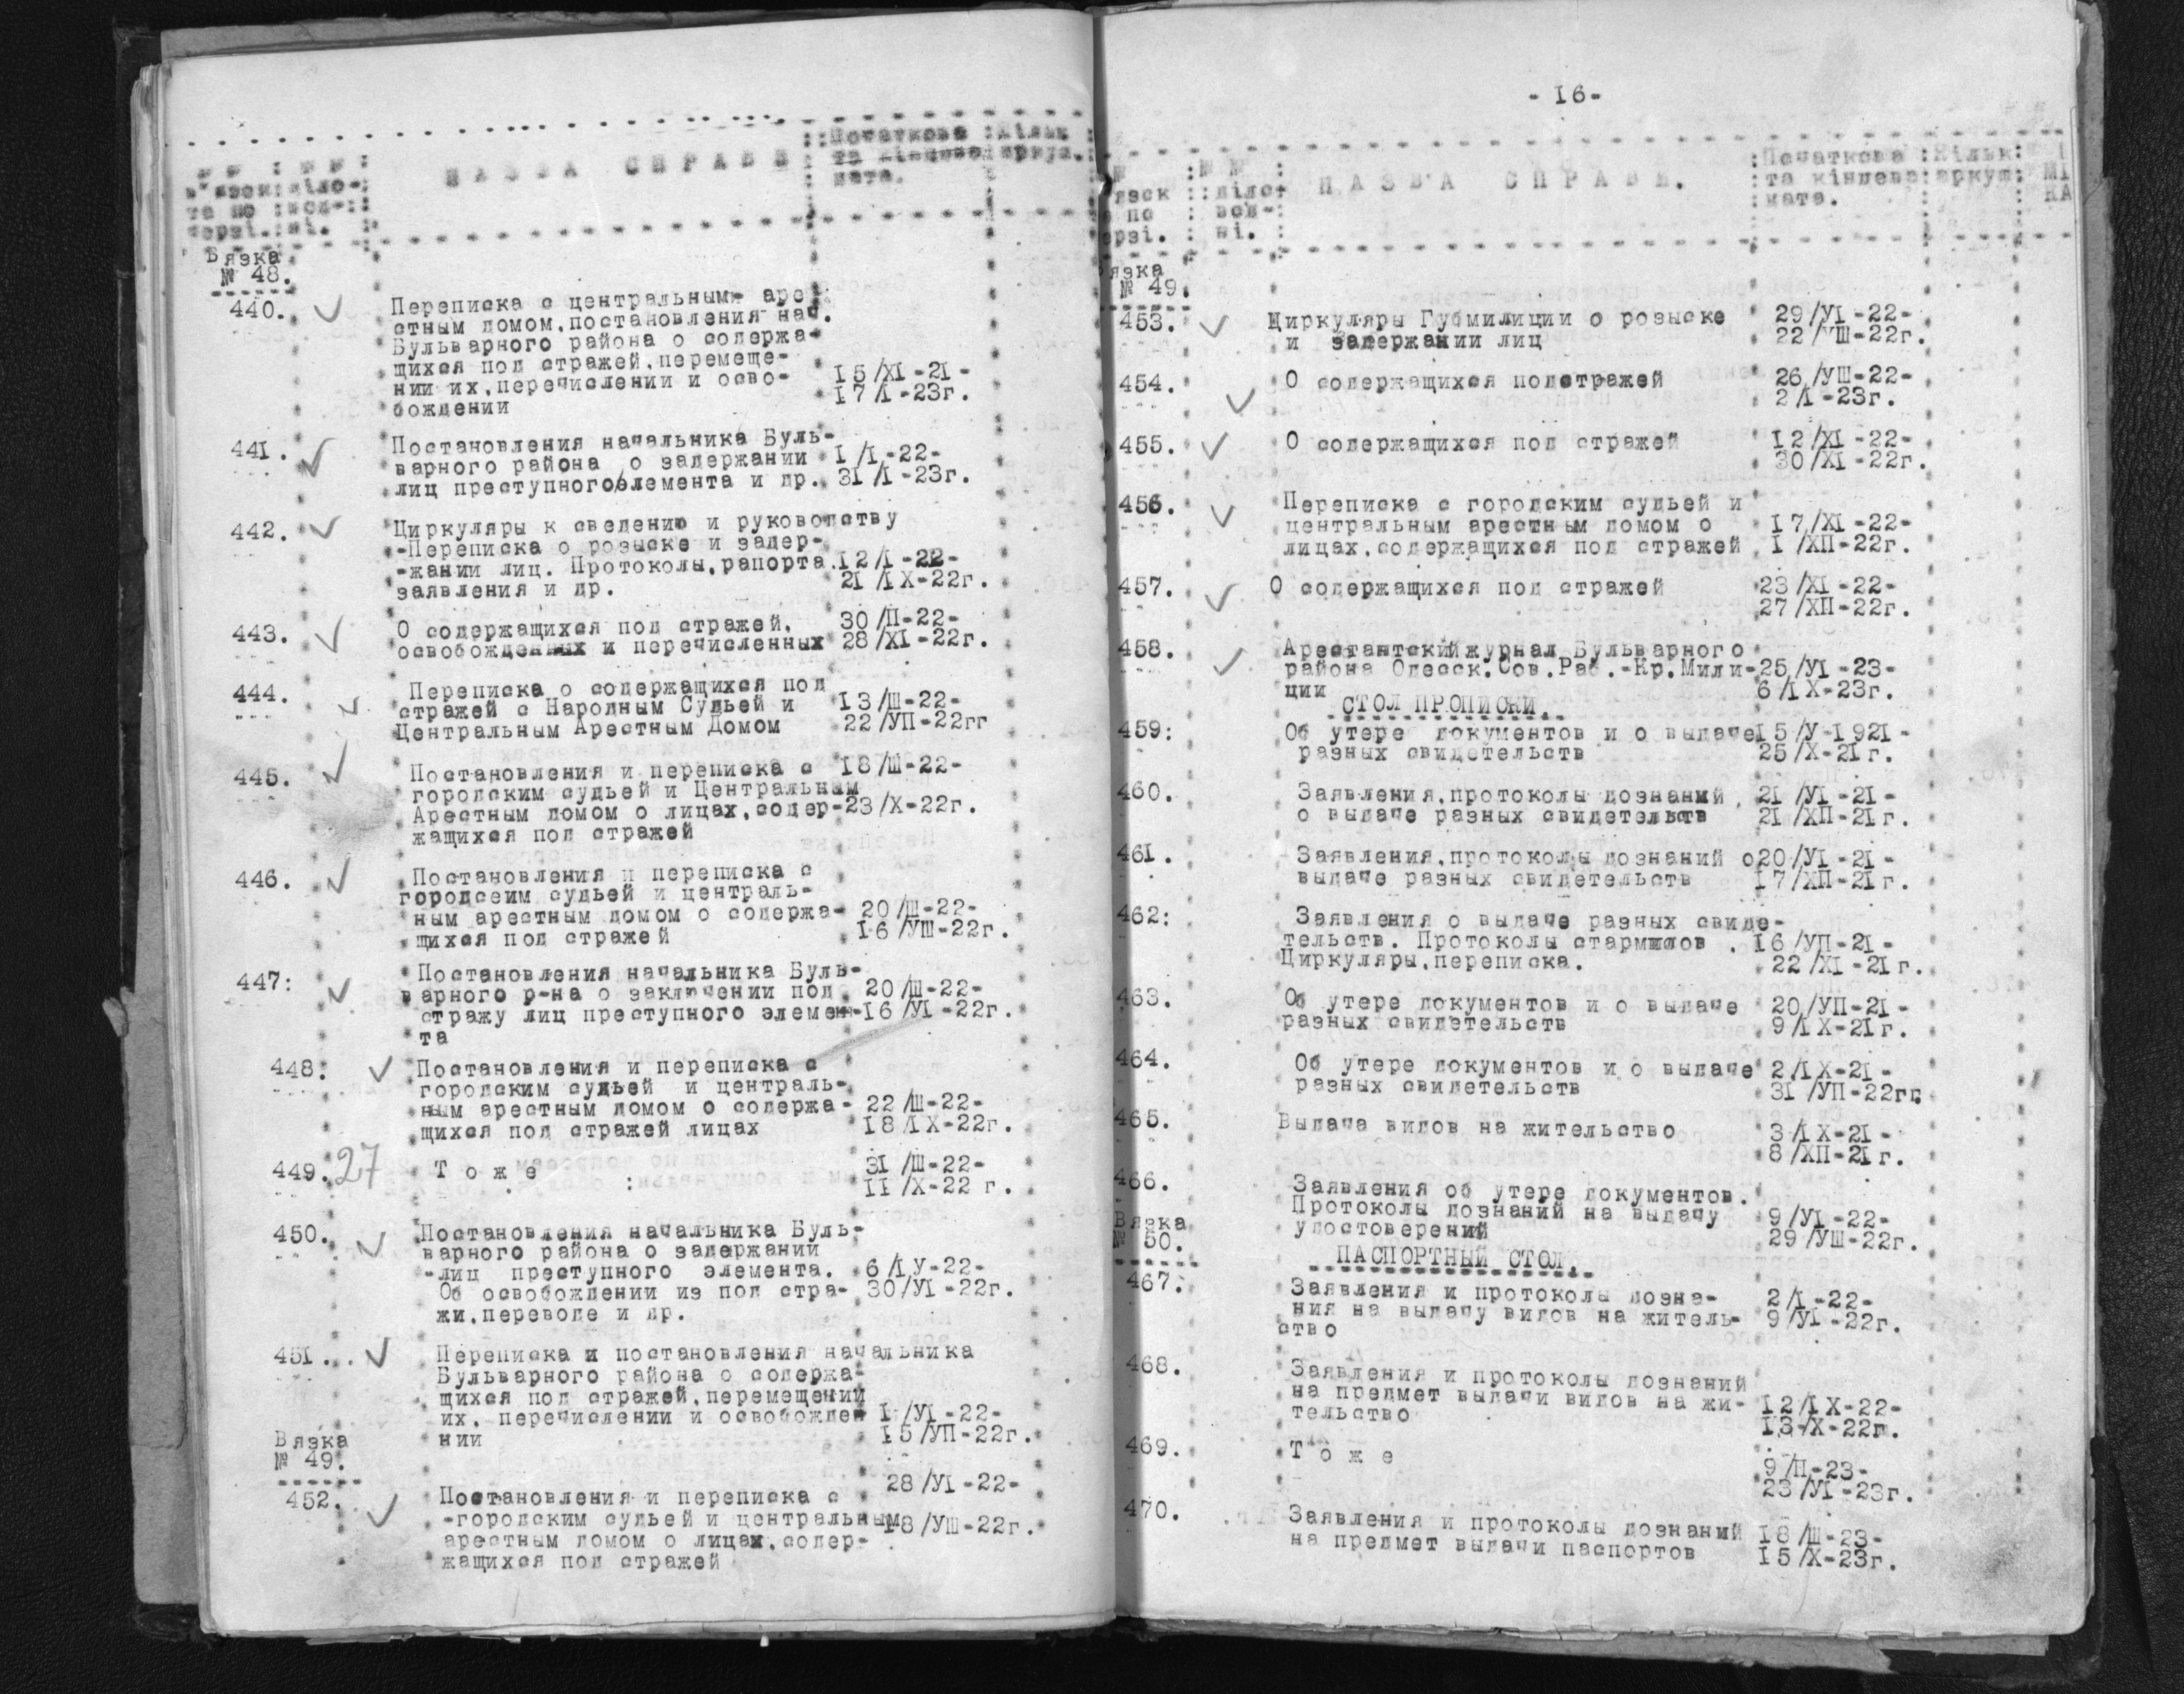 № №
в'язок
та по
черзі.
№ №
діло-
вод-
ні.
НАЗВА СПРАВИ
Початкова
та кінцева
дата.
Кільк
аркуш.
Вязка
№ 48.
440.
Переписка с центральным аре-
стным домом, постановления нач.
Бульварного района о содержа-
щихся под стражей, перемеще-
нии их, перечислении и осво- I5/XI-2I-
бождении I7/I-23г.
441.
Постановления начальника Буль-
варного района о задержании I/I-22-
лиц преступного элемента и др. 3I/I-23г.
442.
Циркуляры к сведению и руководству
-Переписка о розыске и задер-
-жании лиц. Протоколы, рапорта. I2/I-22-
заявления и др. 2I/IX-22г.
443.
О содержащихся под стражей, 30/П-22-
освобожденных и перечисленных 28/XI-22г.
444.
Переписка о содержащихся под
стражей с Народным Судьей и I3/Ш-22-
Центральным Арестным Домом 22/УП-22гг
445.
Постановления и переписка с I8/Ш-22-
городским судьей и Центральным
Арестным домом о лицах, содер- 23/X-22г.
жащихся под стражей
446.
Постановления и переписка с
городсеим судьей и централь-
ным арестным домом о содержа- 20/Ш-22-
щихся под стражей I6/УШ-22г.
447:
Постановления начальника Буль-
варного р-на о заключении под 20/Ш-22-
стражу лиц преступного элемен- I6/УI-22г.
та
448:
Постановления и переписка с
городским судьей и централь-
ным арестным домом о содержа- 22/Ш-22-
щихся под стражей лицах I8/IX-22г.
449. 27
Т о ж е : 3I/Ш-22-
II/X-22 г.
450.
Постановления начальника Буль-
варного района о задержании
-лиц преступного элемента. 6/IУ-22-
Об освобождении из под стра- 30/УI-22г.
жи, переводе и др.
451...
Переписка и постановления начальника
Бульварного района о содержа-
щихся под стражей, перемещений
их, перечислении и освобожден I/УI-22-
нии I5/УП-22г.
Вязка
№ 49.
28/УI-22-
452.
Постановления и переписка с
-городским судьей и центральным I8/УШ-22г.
арестным домом о лицах, содер-
жащихся под стражей
- I6-
№
язск
а по
ерзі.
№ №
діло-
вод-
ні.
НАЗВА СПРАВИ.
Початкова
та кінцева
дата.
Кільк
аркуш.
МІ
КА
язка
№ 49.
453.
Циркуляры Губмилиции о розыске 29/УI-22-
и задержании лиц 22/УШ-22г.
454.
О содержащихся подстражей 26/УШ-22-
2/I-23г.
455.
О содержащихся под стражей I2/XI-22-
30/XI-22г.
456.
Переписка с городским судьей и
центральным арестным домом о I7/XI-22-
лицах, содержащихся под стражей I/ХП-22г.
457.
О содержащихся под стражей 23/XI-22-
27/ХП-22г.
458.
Арестантский журнал Бульварного
района Одесск.Сов.Раб.-Кр.Мили- 25/УI-23-
ции 6/IX-23г.
СТОЛ ПРОПИСКИ.
459:
Об утере документов и о выдаче I5/У-I92I-
разных свидетельств 25/X-2Iг.
460.
Заявления, протоколы дознаний 2I/УI-2I-
о выдаче разных свидетельств 2I/ХП-2Iг.
46I.
Заявления, протоколы дознаний о 20/УI-2I-
выдаче разных свидетельств I7/ХП-2Iг.
462:
Заявления о выдаче разных свиде-
тельств. Протоколы стармилов . I6/УП-2I-
Циркуляры, переписка. 22/XI-2Iг.
463.
Об утере документов и о выдаче 20/УП-2I-
разных свидетельств 9/IX-2Iг.
464.
Об утере документов и о выдаче 2/IX-2I-
разных свидетельств 3I/УП-22гг.
465.
Выдача видов на жительство 3/IX-2I-
8/ХП-2Iг.
466.
Заявления об утере документов.
Протоколы дознаний на выдачу 9/УI-22-
удостоверений 29/УШ-22г.
Вязка
№ 50.
ПАСПОРТНЫЙ СТОЛ.
467.
Заявления и протоколы дозна- 2/I-22-
ния на выдачу видов на житель- 9/УI-22г.
ство
468.
Заявления и протоколы дознаний
на предмет выдачи видов на жи- I2/IX-22-
тельство I3/X-22г.
469.
Т о ж е 9/П-23-
23/УI-23г.
470.
Заявления и протоколы дознаний I8/Ш-23-
на предмет выдачи паспортов I5/X-23г.